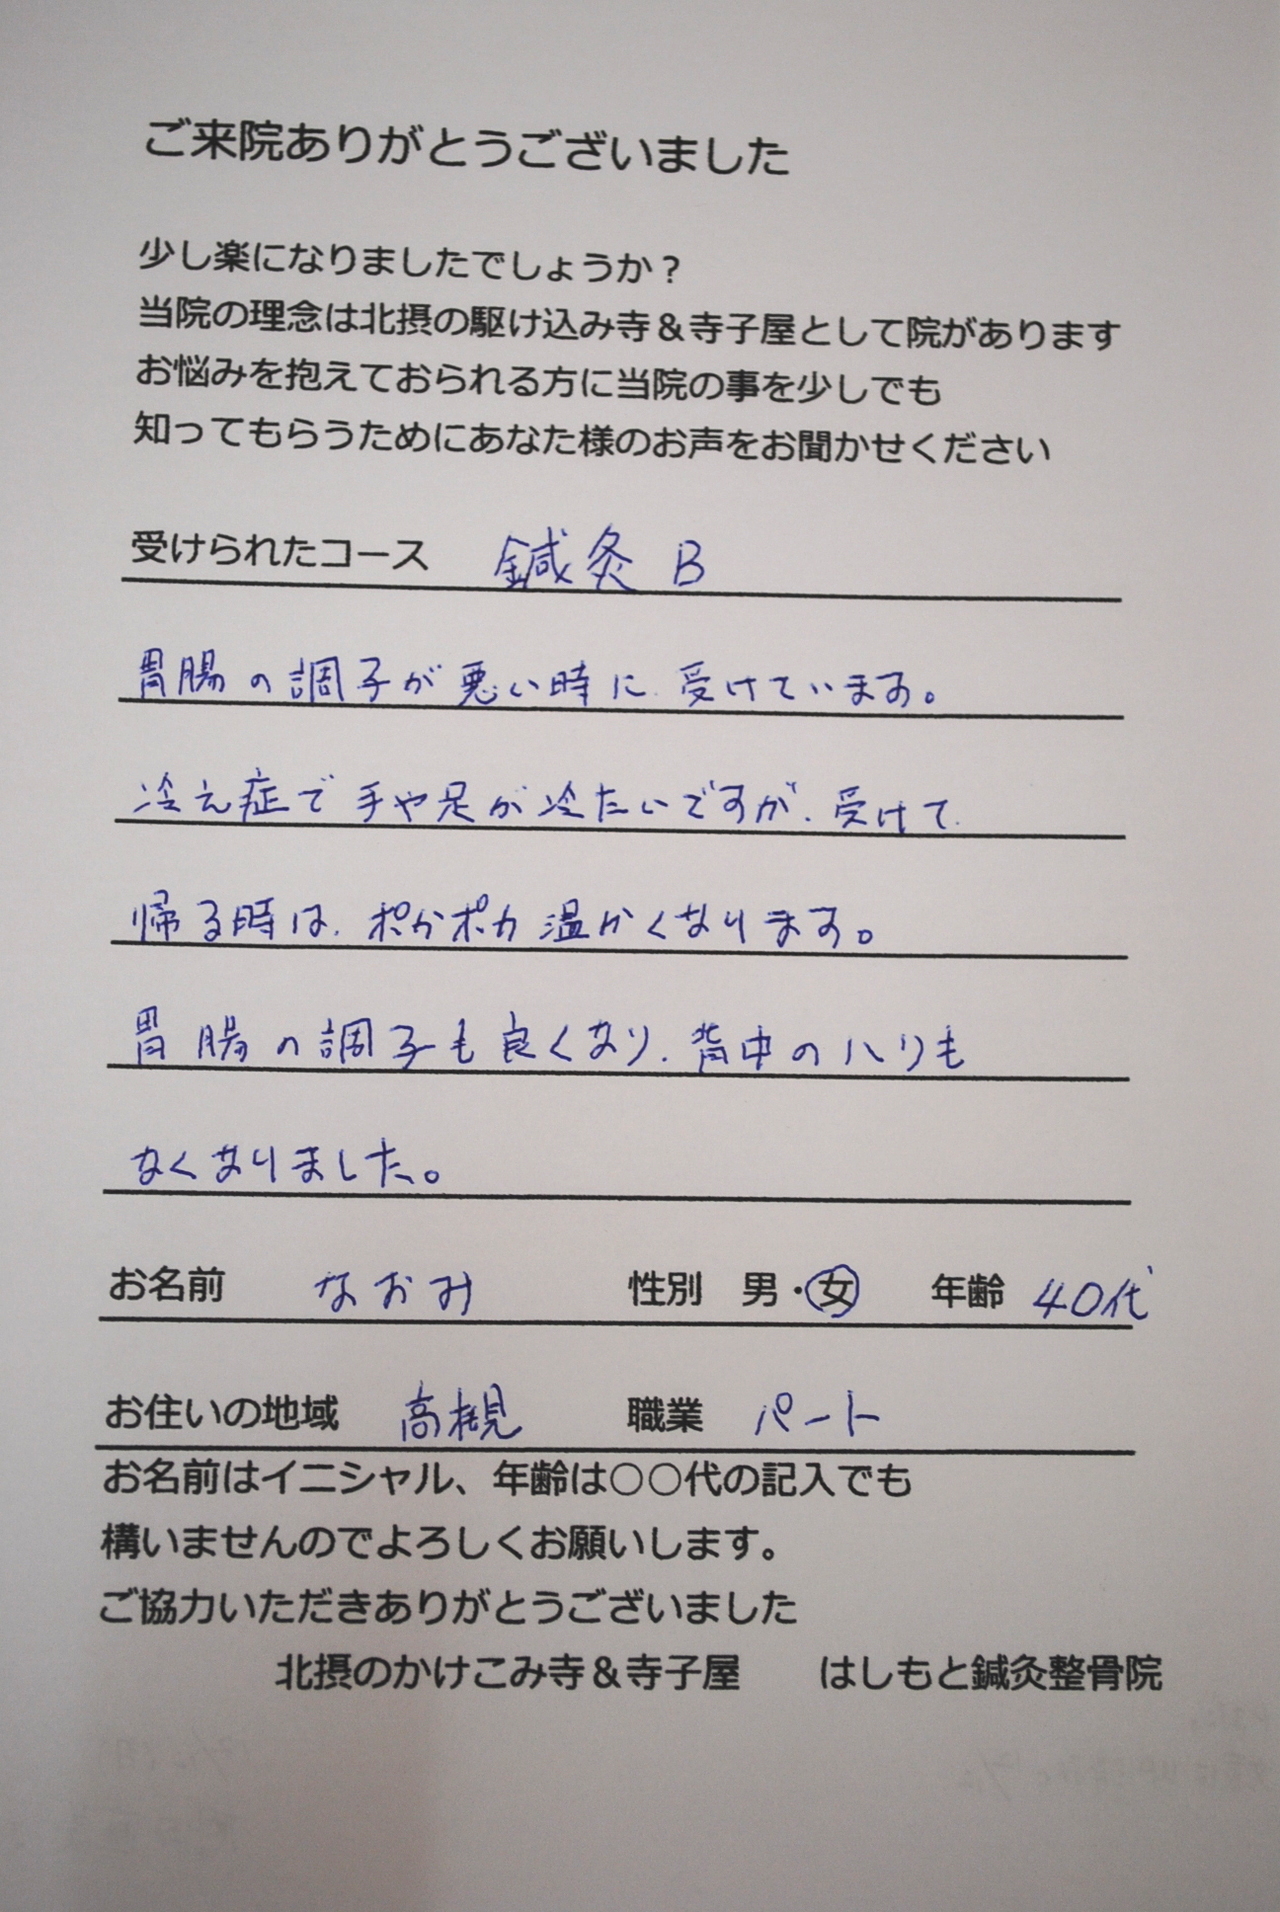 ご来院ありがとうございました
少し楽になりましたでしょうか？
当院の理念は北摂の駆け込み寺＆寺子屋として院があります
お悩みを抱えておられる方に当院の事を少しでも
知ってもらうためにあなた様のお声をお聞かせください
受けられたコース　鍼灸 B
胃腸の調子が悪い時に、受けています。
冷え症で手や足が冷たいですが、受けて
帰る時は、ポカポカ温かくなります。
胃腸の調子も良くなり、背中のハリも
なくなりました。
お名前　なおみ　性別　男・女　年齢　40代
お住いの地域　高槻　職業　パート
お名前はイニシャル、年齢は〇〇代の記入でも
構いませんのでよろしくお願いします。
ご協力いただきありがとうございました
北摂のかけこみ寺＆寺子屋　はしもと鍼灸整骨院